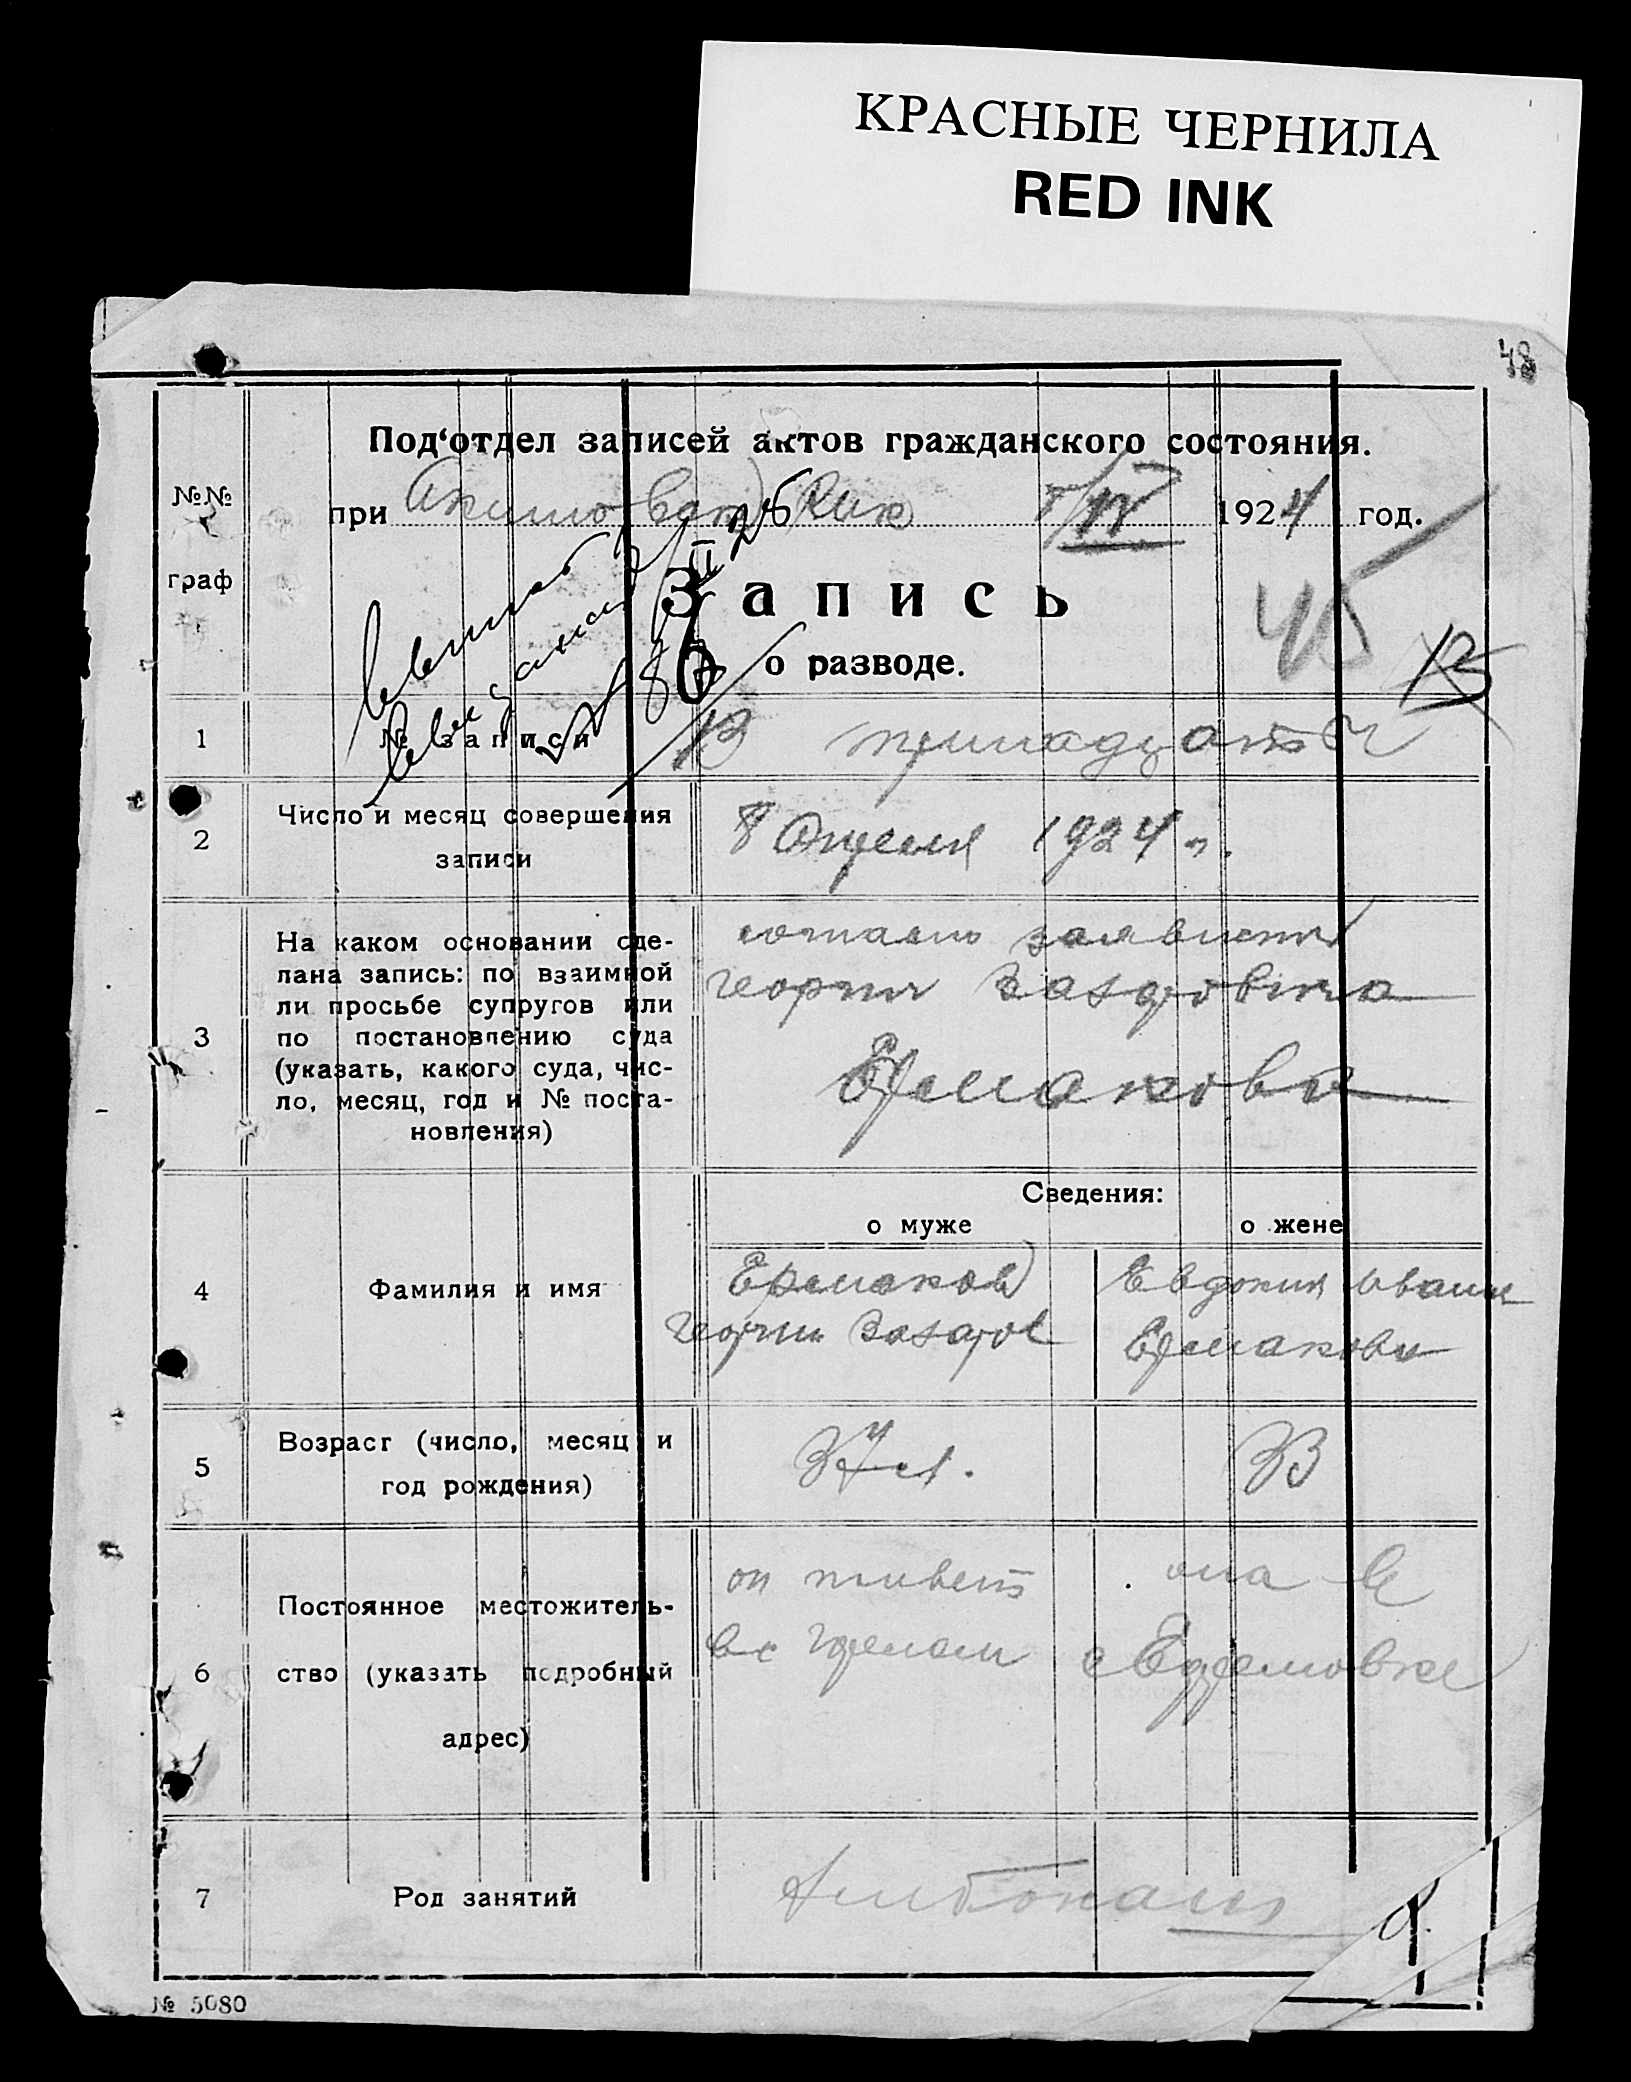 КРАСНЫЕ ЧЕРНИЛА
RED INK
48
Под‘отдел записей актов гражданского состояния.
№№ граф
при 1924 год.
Запись
45
о разводе.
13
1 № записи 13 тринадцать
2 Число и месяц совершения
записи
8 Апреля 1924 г.
3 На каком основании сде-
лана запись: по взаимной
ли просьбе супругов или
по постановлению суда
(указать, какого суда, чис-
ло, месяц, год и № поста-
новления)
согласно
Георгия
Ермакова
Сведения:
о муже о жене
4 Фамилия и имя
Ермаков Евдокия Иванов
Георгий Ермакова
5 Возраст (число, месяц и
год рождения)
37 л. 33
6 Постоянное местожитель-
ство (указать подробный
адрес)
он живет она в
в с с Ефремовке
7 Род занятий
№ 5080